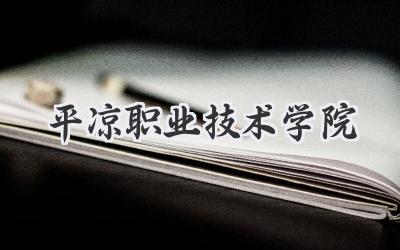 平凉职业技术学院